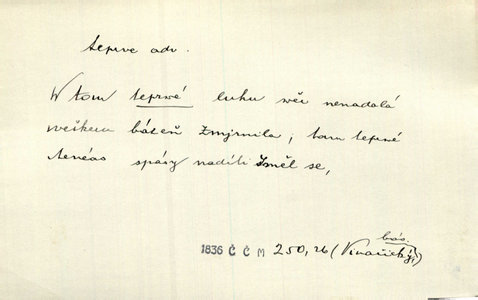 teprve adv.
W tom teprwé luhu wěc nenadalá
weškeru bázeň zmjrnila; tam teprwé
Aenéas spásy nadíti směl se,
bás.
1836 Č Č M 250, 26 (Vinařický)